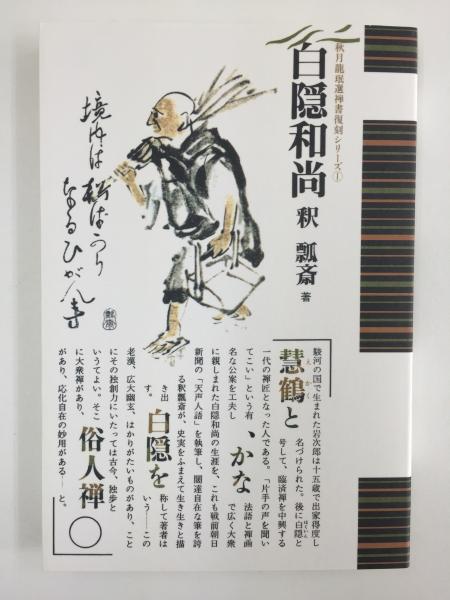 秋月龍珉選禅書復刻シリーズ①
白隠和尚
釈 瓢斎 著
境内は
松ばかり
なるひがん寺
駿河の国で生まれた岩次郎は十五歳で出家得度し
慧鶴と
名づけられた。後に白隠と
号して、臨済禅を中興する
一代の禅匠となった人である。「片手の声を聞い
てこい」という有
名な公案を工夫し
、かな
法語と禅画
で広く大衆
に親しまれた白隠和尚の生涯を、これも戦前朝日
新聞の「天声人語」を執筆し、闊達自在な筆を誇
る釈瓢斎が、史実をふまえて生き生きと描
き出
す。
白隠を
称して著者は
いう――この
老漢、広大幽玄、はかりがたいものがあり、こと
にその独創力にいたっては古今、独歩と
いうてよい。そこ
に大衆禅があり、
俗人禅〇
があり、応化自在の妙用がある――と。